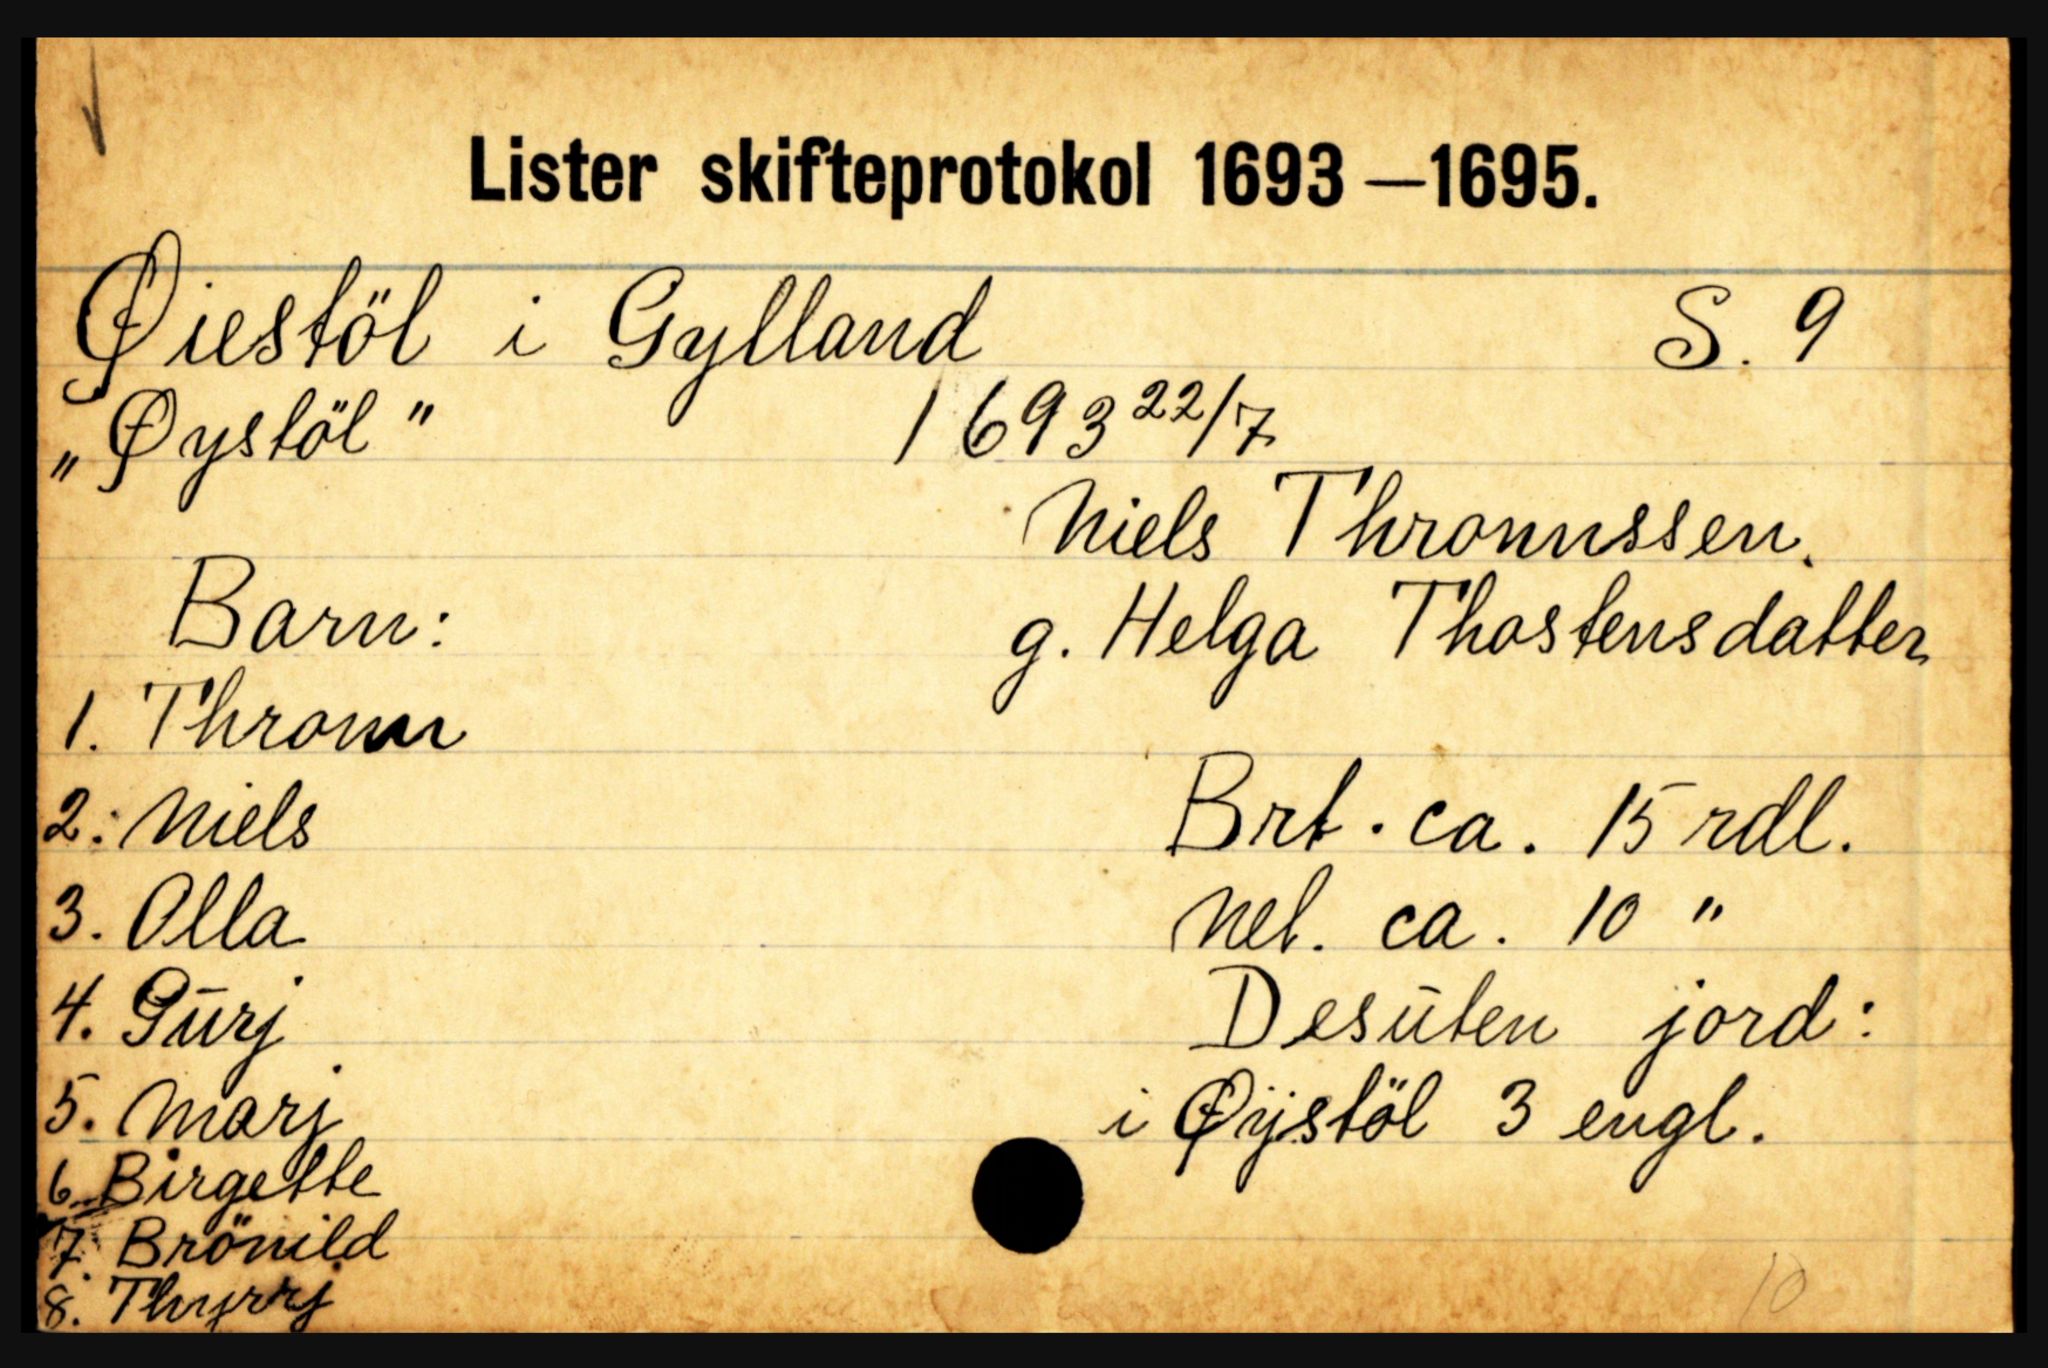 Lister skifteprotokol 1693—1695.
Øiestöl i Gylland S. 9
„Øystöl" 1693 22/7
Niels Thronnssen.
Barn: g. Helga Thostensdatter
1. Thronn
2. Niels Brt. ca. 15 rdl.
3. Olla Net. ca. 10 "
4. Gūrj Desūten jord:
5. Marj i Øÿstöl 3 engl.
6. Birgette
7. Brönild
8. Thyrrj
10